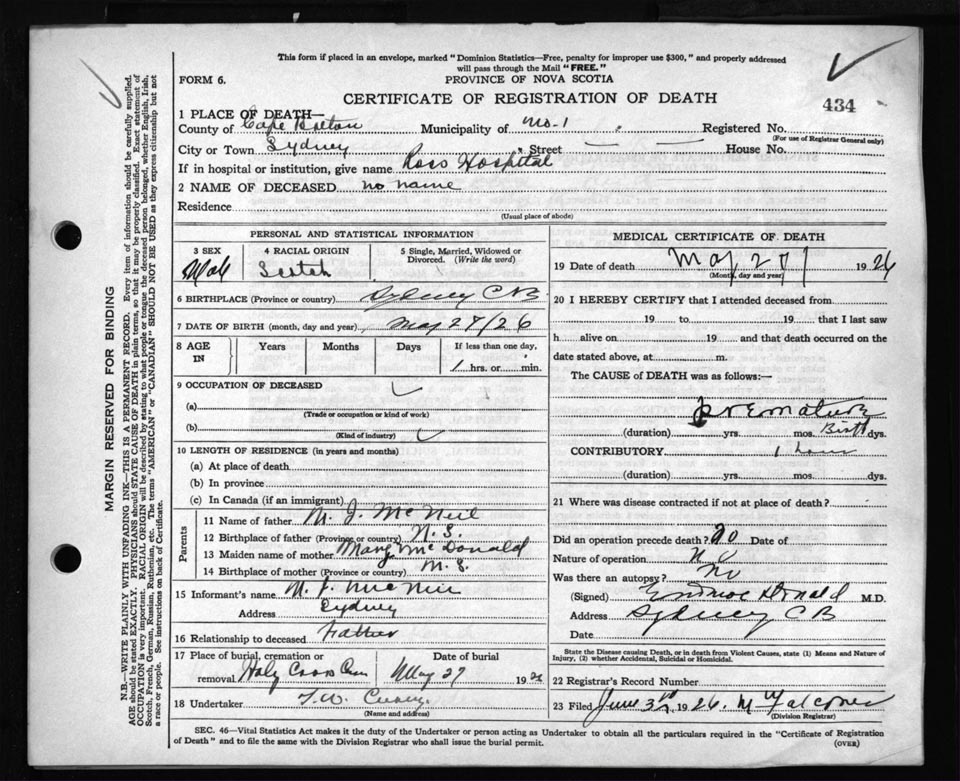 This form if placed in an envelope, marked "Dominion Statistics—Free, penalty for improper use $300," and properly addressed
will pass through the Mail "FREE."
FORM 6.
PROVINCE OF NOVA SCOTIA
CERTIFICATE OF REGISTRATION OF DEATH
434
1 PLACE OF DEATH—
County of Cape Breton Municipality of No-1 Registered No.
(For use of Registrar General only)
City or Town Sydney Street House No.
If in hospital or institution, give name Ross Hospital
2 NAME OF DECEASED no name
Residence
(Usual place of abode)
PERSONAL AND STATISTICAL INFORMATION
3 SEX 4 RACIAL ORIGIN 5 Single, Married, Widowed or Divorced. (Write the word)
Male Scotch
6 BIRTHPLACE (Province or country) Sydney C B
7 DATE OF BIRTH (month, day and year) May 27/26
8 AGE IN Years Months Days If less than one day,
1 hrs. or min.
9 OCCUPATION OF DECEASED
(a)
(Trade or occupation or kind of work)
(b)
(Kind of industry)
10 LENGTH OF RESIDENCE (in years and months)
(a) At place of death
(b) In province
(c) In Canada (if an immigrant)
Parents
11 Name of father M. J. McNeil
12 Birthplace of father (Province or country) N. S.
13 Maiden name of mother Mary McDonald
14 Birthplace of mother (Province or country) N. S.
15 Informant's name M. J. McNeil
Address Sydney
16 Relationship to deceased Father
17 Place of burial, cremation or removal Holy Cross Cem Date of burial May 27 1926
18 Undertaker F. W. Curry
(Name and address)
MEDICAL CERTIFICATE OF DEATH
19 Date of death May 27 1926
(Month, day and year)
20 I HEREBY CERTIFY that I attended deceased from
19 to 19 that I last saw
h alive on 19 and that death occurred on the
date stated above, at m.
The CAUSE of DEATH was as follows:—
Premature
(duration) yrs. mos. Birth dys.
CONTRIBUTORY 1 hour
(duration) yrs. mos. dys.
21 Where was disease contracted if not at place of death?
Did an operation precede death? no Date of
Nature of operation no
Was there an autopsy? No
(Signed) M.D.
Address Sydney C B
Date
State the Disease causing Death, or in death from Violent Causes, state (1) Means and Nature of
Injury, (2) whether Accidental, Suicidal or Homicidal.
22 Registrar's Record Number
23 Filed June 3rd, 1926. M Falconer
(Division Registrar)
SEC. 46—Vital Statistics Act makes it the duty of the Undertaker or person acting as Undertaker to obtain all the particulars required in the "Certificate of Registration
of Death" and to file the same with the Division Registrar who shall issue the burial permit.
(OVER)
MARGIN RESERVED FOR BINDING
N.B.—WRITE PLAINLY WITH UNFADING INK—THIS IS A PERMANENT RECORD. Every item of information should be carefully supplied.
AGE should be stated EXACTLY. PHYSICIANS should STATE CAUSE OF DEATH in plain terms, so that it may be properly classified. Exact statement of
OCCUPATION is very important. RACIAL ORIGIN will be described by stating to what people or tongue the deceased person belonged, whether English, Irish,
Scotch, French, German, Russian, Ruthenian, etc. The terms "AMERICAN" or "CANADIAN" SHOULD NOT BE USED as they express citizenship but not
a race or people. See instructions on back of Certificate.